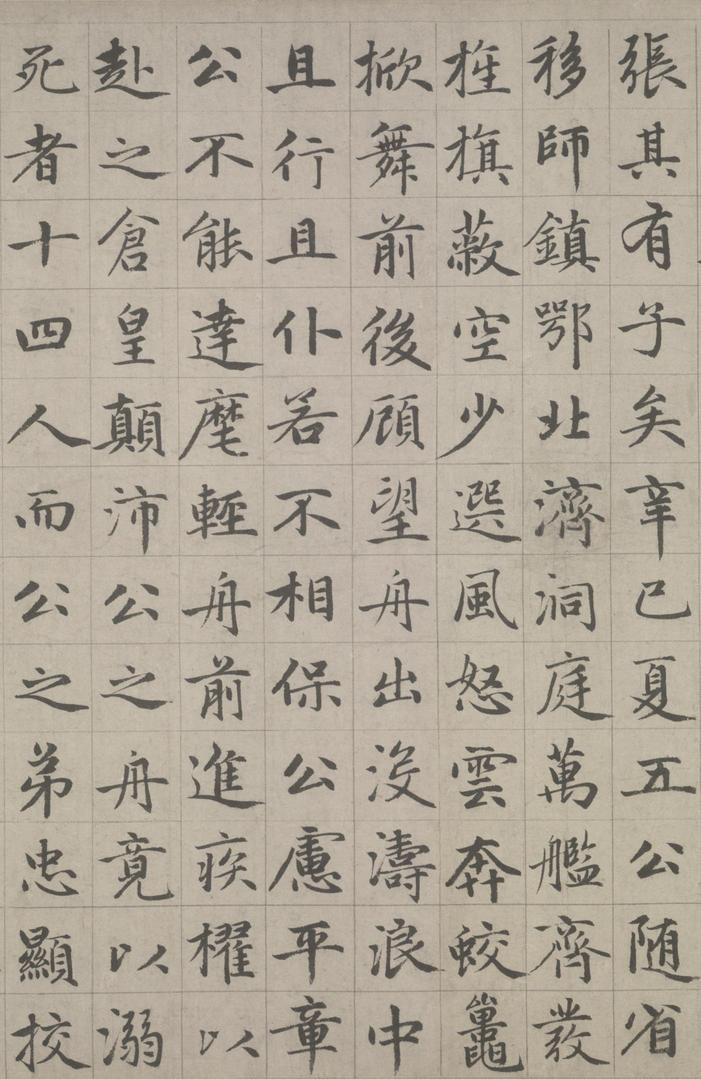 張其有子矣辛巳夏五公随省
移師鎮鄂北濟洞庭萬艦齊發
旌旗蔽空少選風怒雲奔蛟鼉
掀舞前後顧望舟出没濤浪中
且行且仆若不相保公慮平章
公不能達麾輕舟前進疾櫂以
赴之倉皇顛沛公之舟竟以溺
死者十四人而公之弟忠顯挍